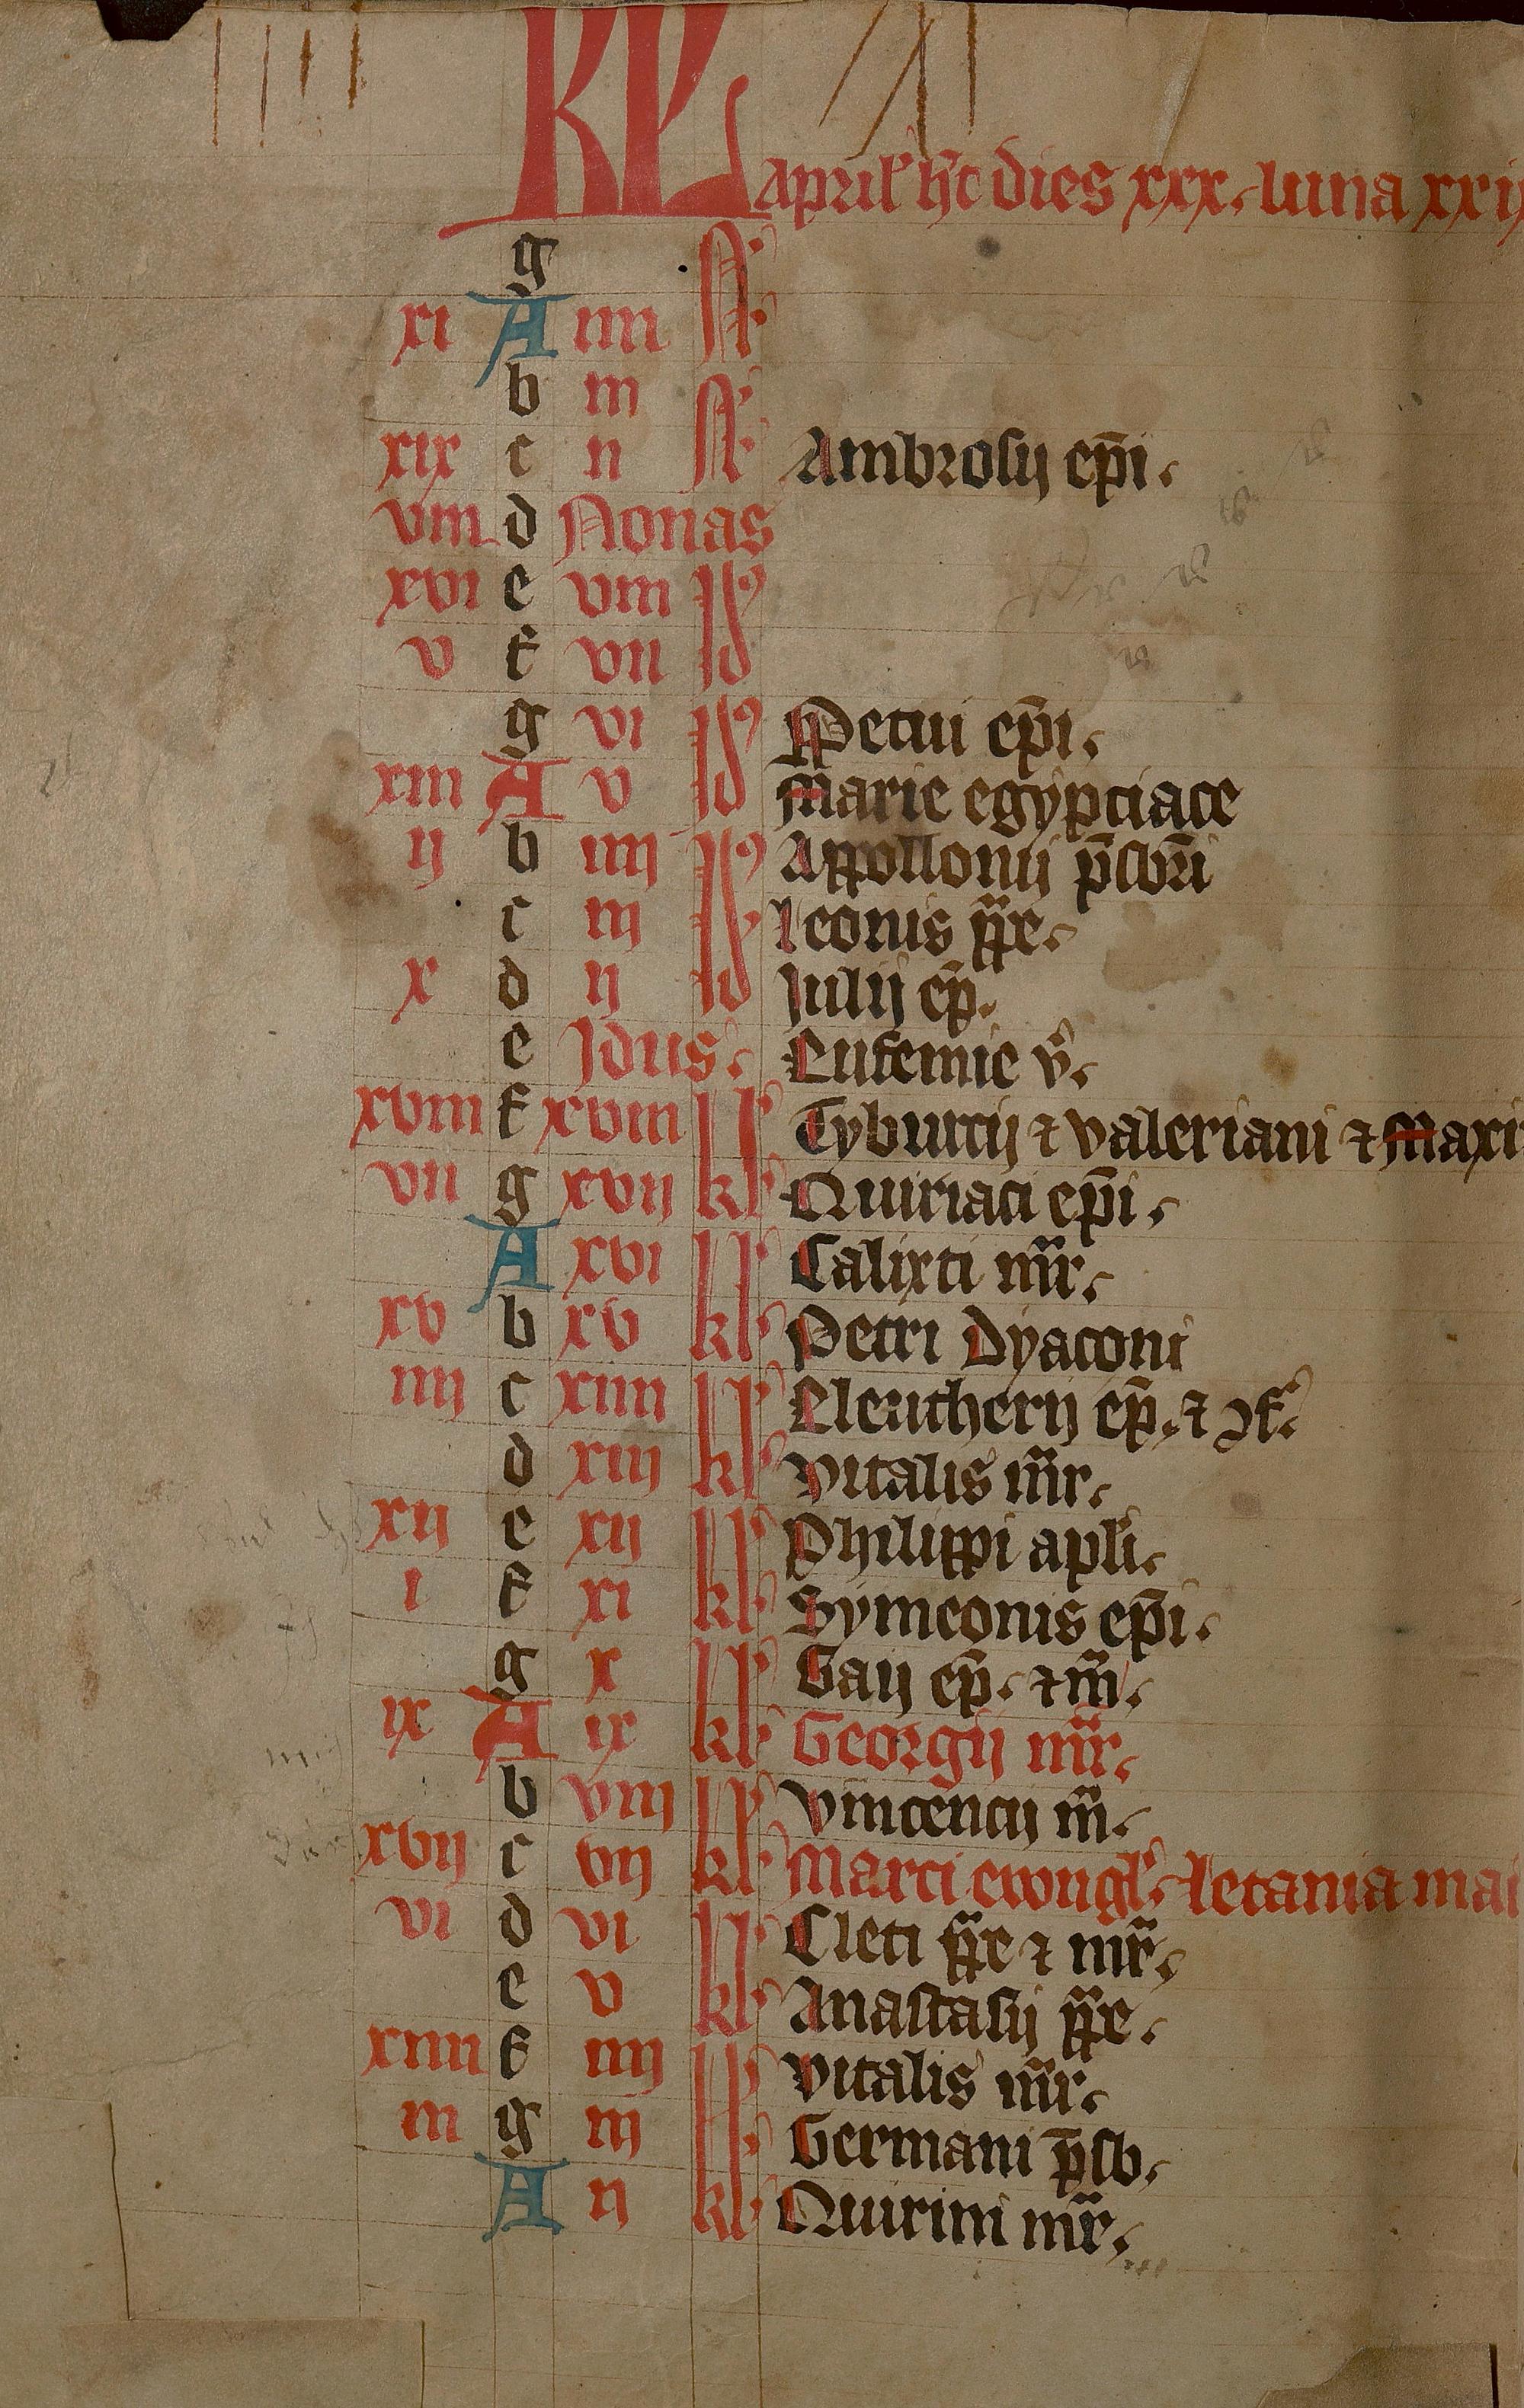 KL
april' h't dies xxx. luna xxix
g N'
xi A iiii N'
b iii N'
xix c ii N' Ambrosij ep̄i.
viii d Nonas
xvi e viii Id'
v f vii Id
g vi Id' Petui ep̄i.
xiii A v Id Marie egypciace
ij b iiij Id' Appollonij p̄sbr̄i
c iij Id' Leonis pp̄e.
x d ij Id Julij ep̄.
e Idus. Eufemie v'.
xviii f xviii kl' Tyburcij ⁊ valeriani ⁊ Maxi
vii g xvij kl' Quiriaci ep̄i.
A xvi kl' Calixti mr̄.
xv b xv kl' Petri Dyaconi
iiij c xiiii kl' Eleutherij ep̄. ⁊ ꝯf'.
d xiij kl' Vitalis mr̄.
xij e xij kl' Philippi apl̄i.
i f xi kl' Symeonis ep̄i.
g x kl' Gaij ep̄. ⁊ m̄.
ix A ix kl' Georgij mr̄.
b viij kl' Vincencij m̄.
xvij c vij kl' Marci ewngl'. letania mai
vi d vi kl' Cleti pp̄e ⁊ mr̄.
e v kl' Anastasij pp̄e.
xiiii f iiij kl' Vitalis mr̄.
iii g iij kl' Germani p̄sb.
A ij kl' Quirini mr̄.